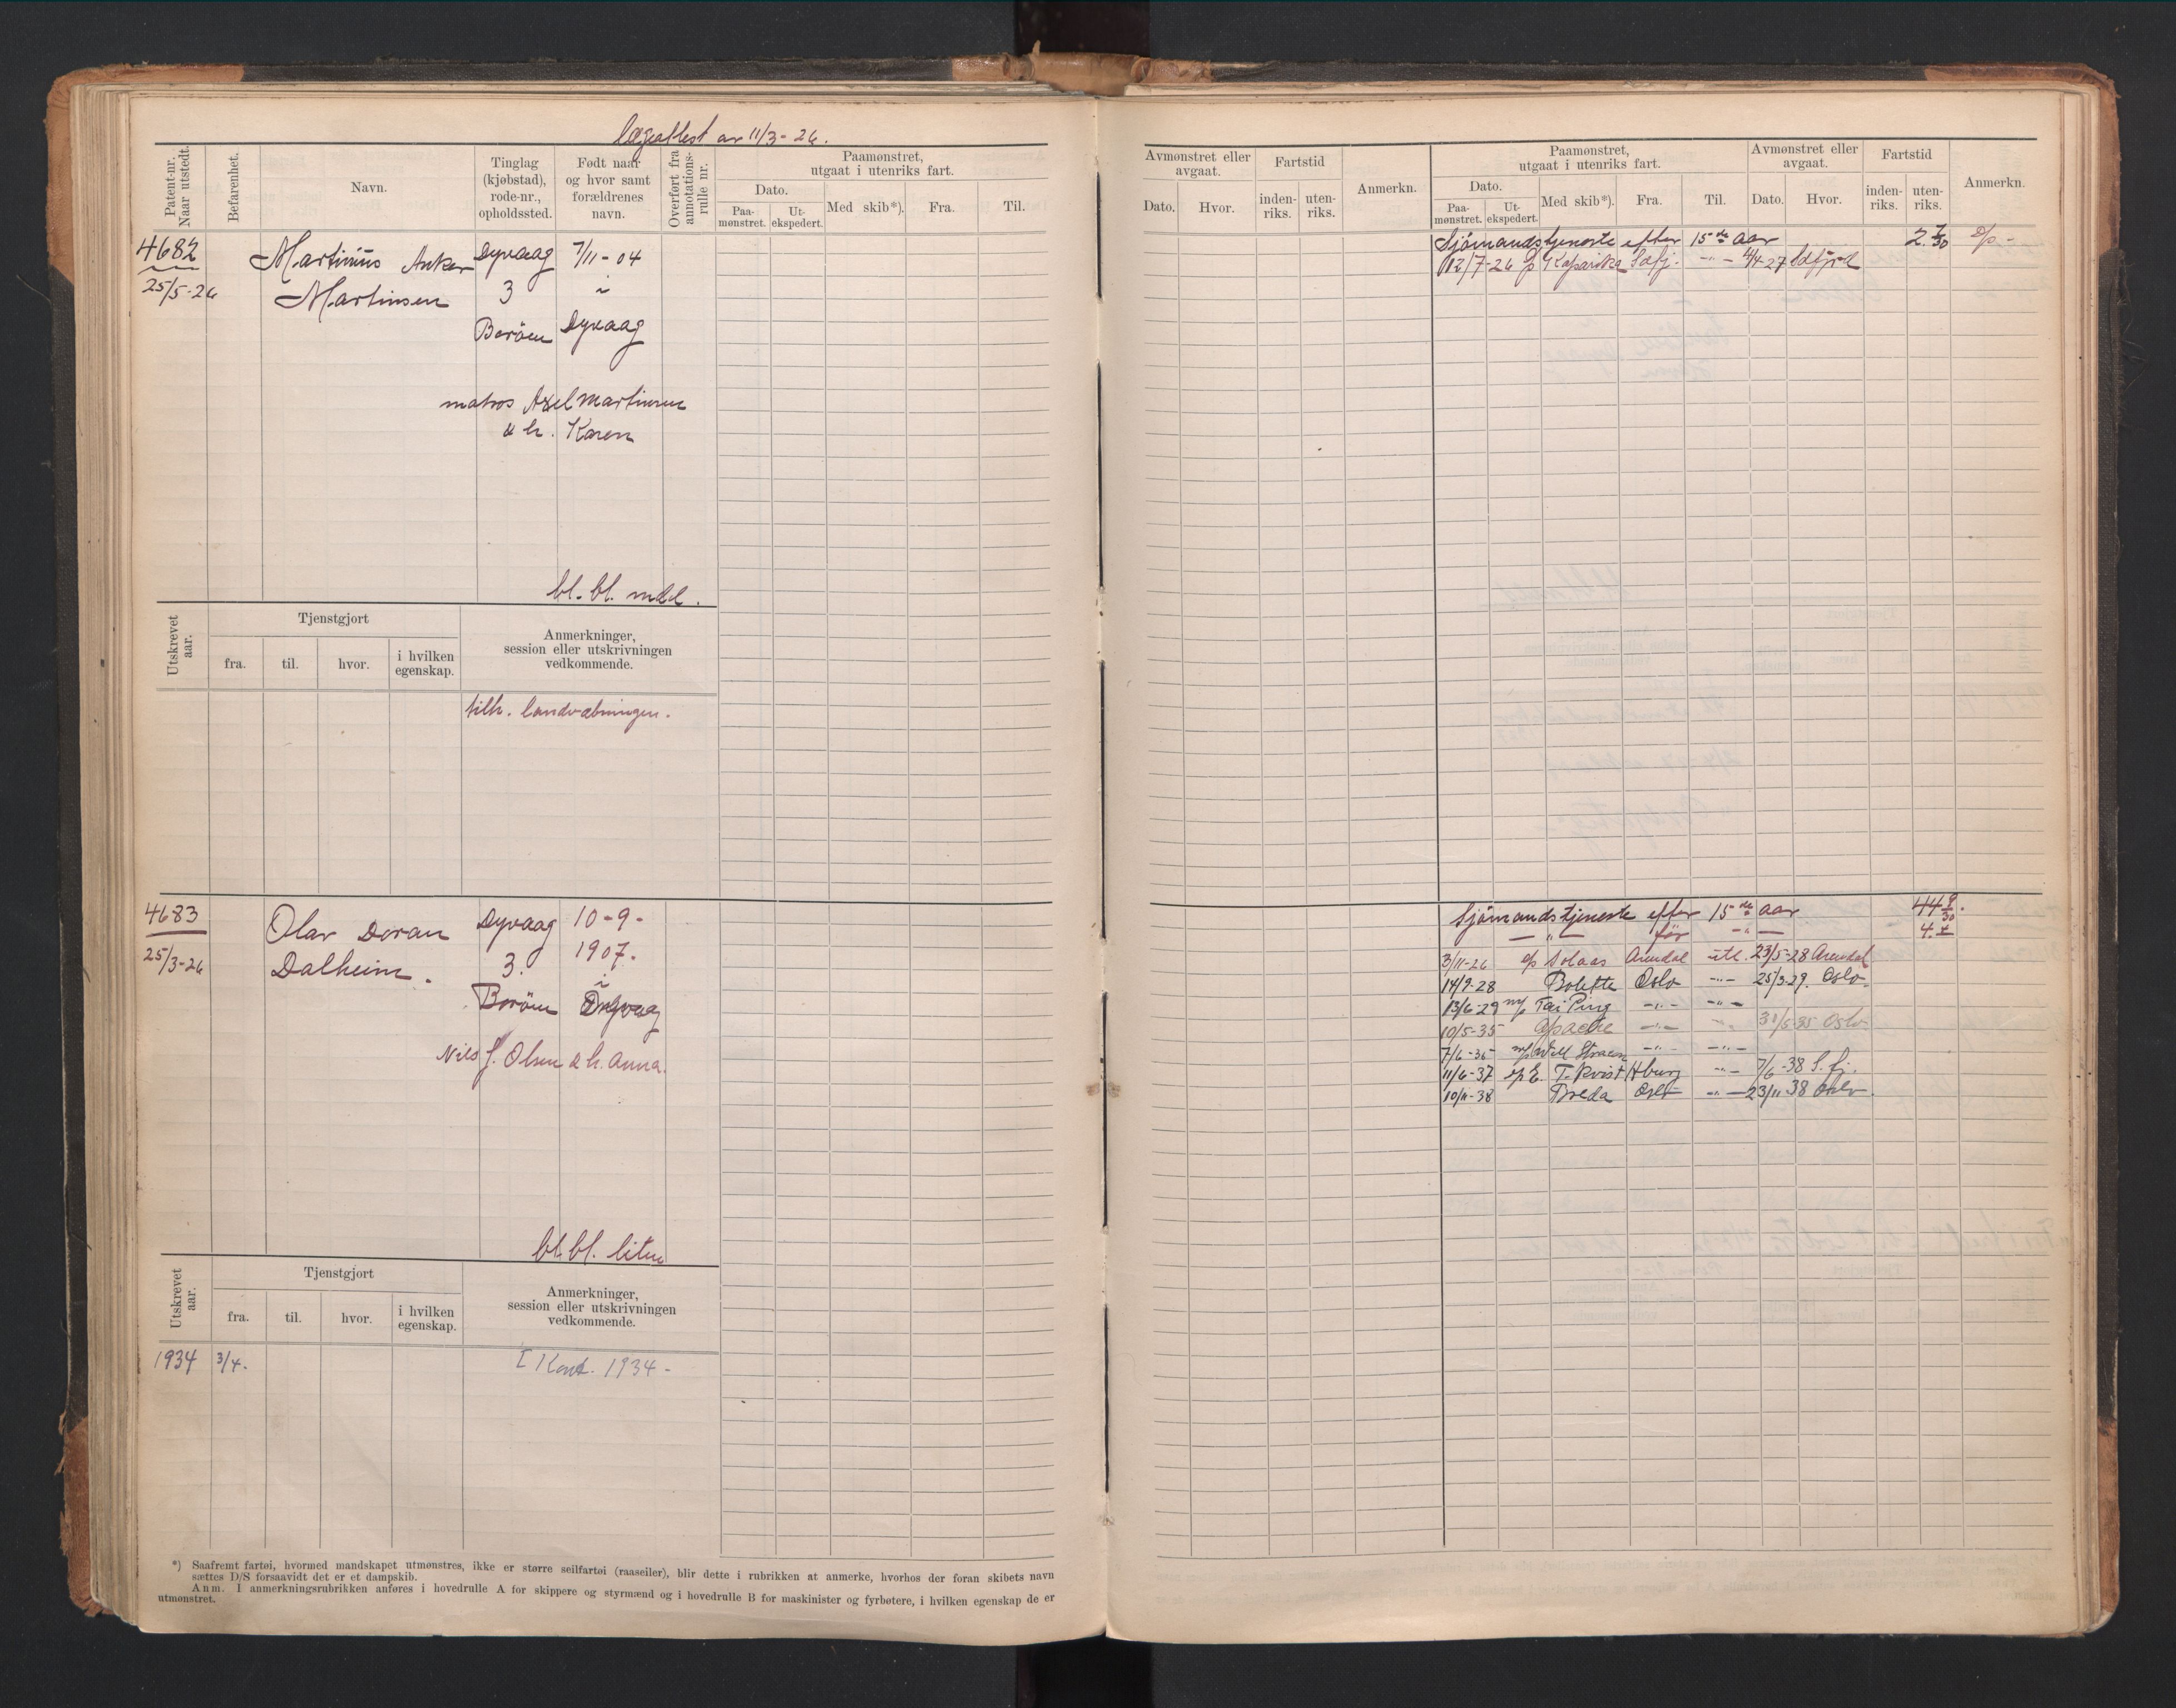 Lægeattest av 11/3-26.
Patent-nr. Naar utstedt.
Befarenhet.
Navn.
Tinglag (kjøbstad), rode-nr., opholdssted.
Født naar og hvor samt forældrenes navn.
Overført fra annotations-rulle nr.
Paamønstret, utgaat i utenriks fart.
Dato.
Paa-mønstret.
Ut-ekspedert.
Med skib*).
Fra.
Til.
4682
25/5-26
Martinius Anker
Martinsen
Dyvaag
3
Borøen
7/11-04
i
Dyvaag
matros Axel Martinsen
& h. Karen
bl. bl. mdl.
Utskrevet aar.
Tjenstgjort
fra.
til.
hvor.
i hvilken egenskap.
Anmerkninger, session eller utskrivningen vedkommende.
tilh. landvæbningen.
4683
25/3-26
Olav Doran
Dalheim.
Dyvaag
3.
Borøen
10-9-
1907.
i
Dyvaag
Nils J. Olsen & h. Anna.
bl. bl. liten
Utskrevet aar.
Tjenstgjort
fra.
til.
hvor.
i hvilken egenskap.
Anmerkninger, session eller utskrivningen vedkommende.
1934 3/4.
I Kont. 1934-
*) Saafremt fartøi, hvormed mandskapet utmønstres, ikke er større seilfartøi (raaseiler), blir dette i rubrikken at anmerke, hvorhos der foran skibets navn
sættes D/S forsaavidt det er et dampskib.
Anm. I anmerkningsrubrikken anføres i hovedrulle A for skippere og styrmænd og i hovedrulle B for maskinister og fyrbøtere, i hvilken egenskap de er
utmønstret.
Avmønstret eller avgaat.
Dato.
Hvor.
Fartstid
inden-riks.
uten-riks.
Anmerkn.
Paamønstret, utgaat i utenriks fart.
Dato.
Paa-mønstret.
Ut-ekspedert.
Med skib*).
Fra.
Til.
Avmønstret eller avgaat.
Dato.
Hvor.
Fartstid
inden-riks.
uten-riks.
Anmerkn.
Sjömandstjeneste efter 15 de aar 2. 7/30 d/s -
12/7-26 Kaparika Sdfj. -"- 4/4 27 Sdfjord
Sjömandstjeneste efter 15 de aar 44 9/30.
— " — før -"- 4.
3/11-26 d/s Solaas Arendal utl. 23/5-28 Arendal
14/9-28 Bolette Oslo -"- 25/3-29. Oslo
13/6-29 m/s Tai Ping -"- -"-
10/5-35 Apache -"- " 31/5-35 Oslo
7/6-35 m/s Will -"- -"-
11/6-37 T. Kvist Hburg -"- 7/6-38 S.fj.
10/11-38 Breda Oslo -"- 23/11 38 Oslo